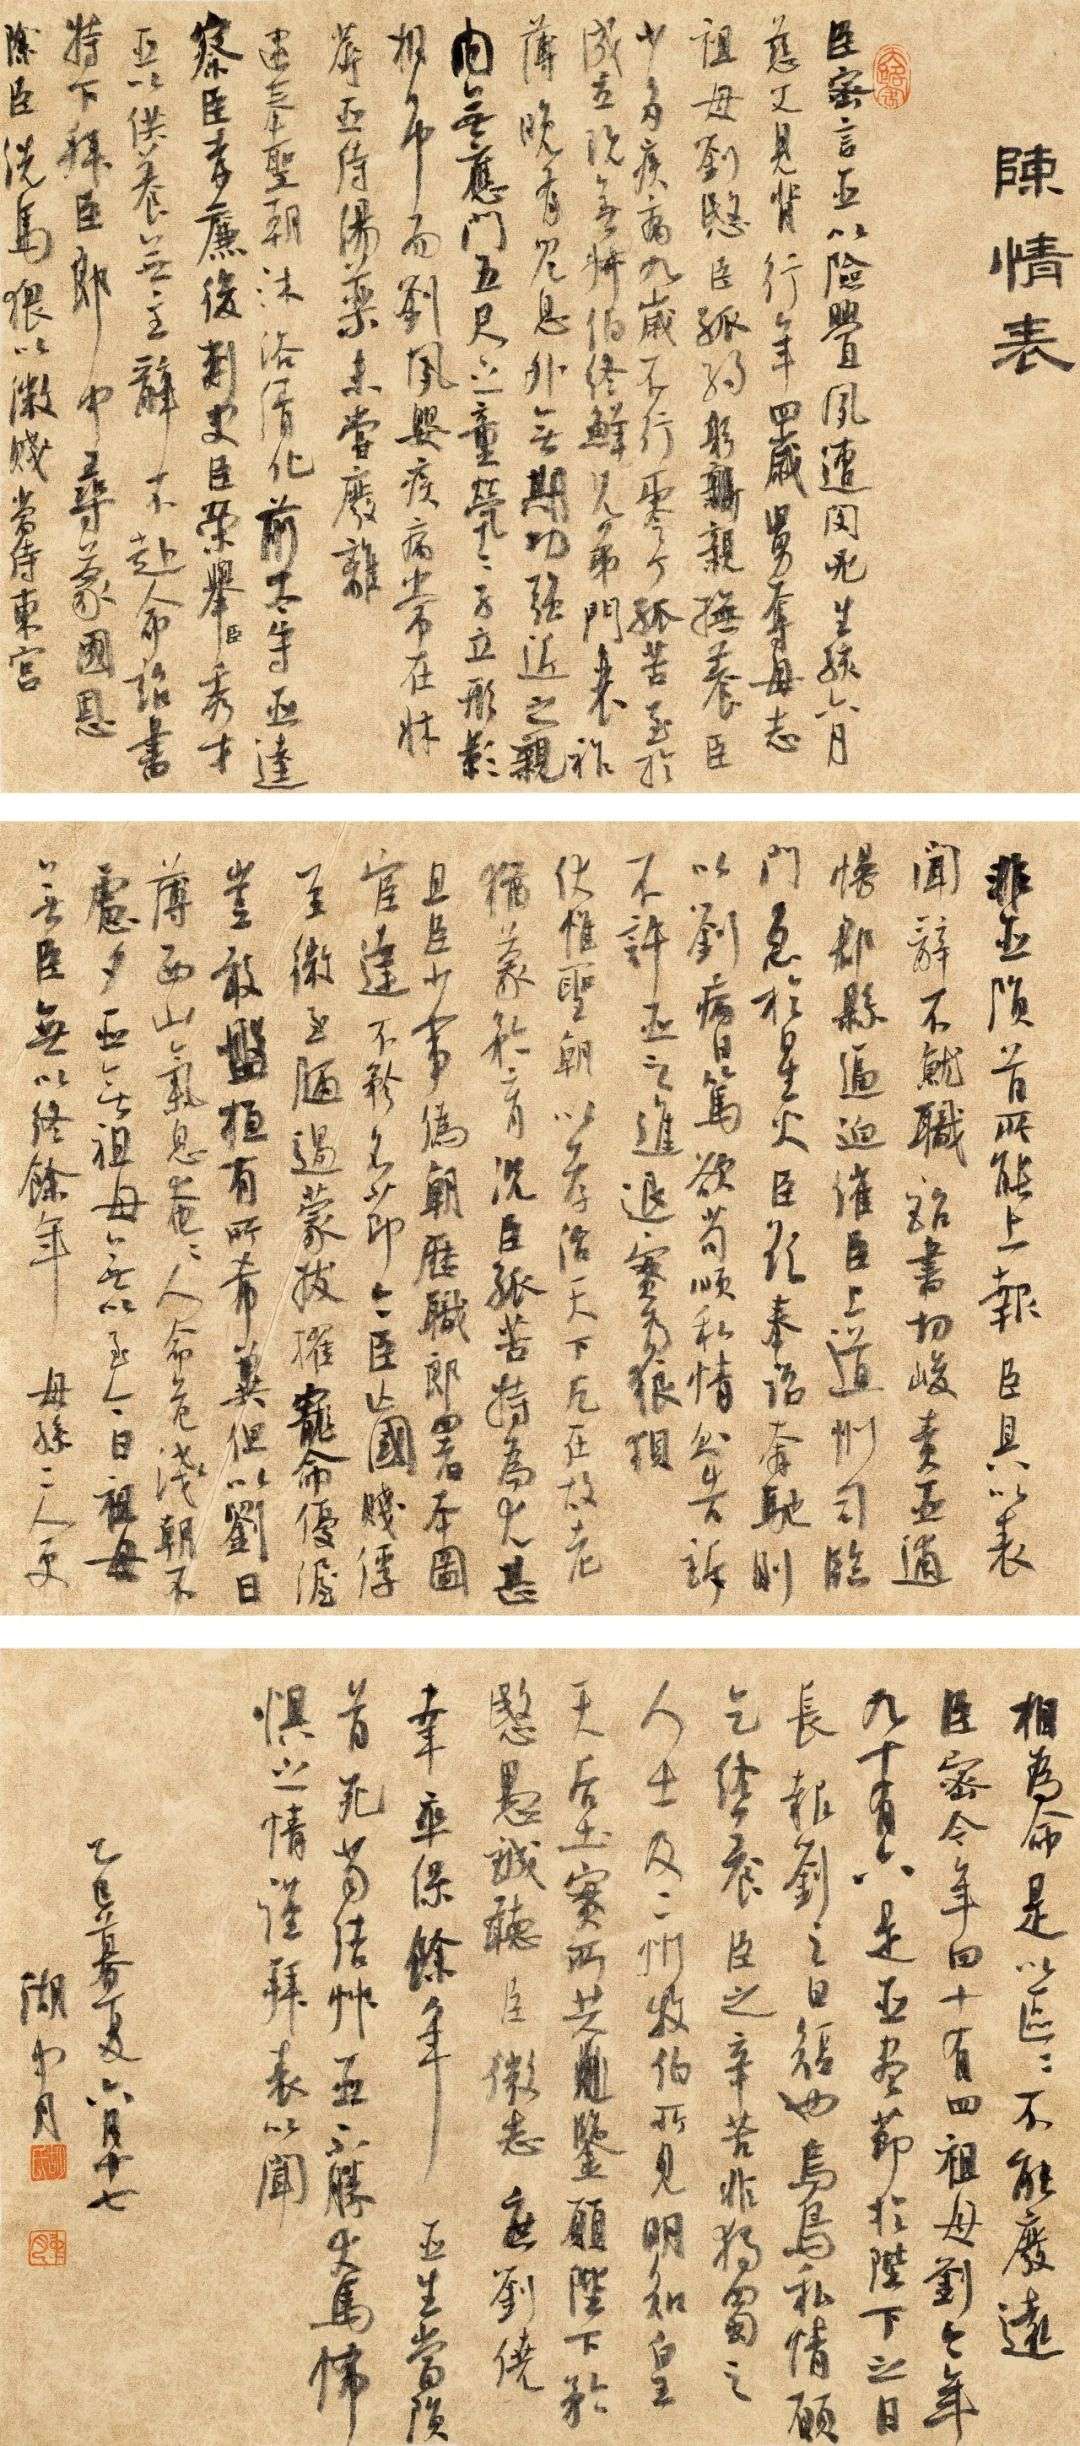 陳情表
臣密言臣以險釁夙遭閔凶生孩六月
慈父見背行年四歲舅奪母志
祖母劉愍臣孤弱躬親撫養臣
少多疾病九歲不行零丁孤苦至於
成立既無叔伯終鮮兄弟門衰祚
薄晚有兒息外無期功強近之親
內無應門五尺之童煢〻孑立形影
相弔而劉夙嬰疾病常在牀
蓐臣侍湯藥未嘗廢離
逮奉聖朝沐浴清化前太守臣逵
察臣孝廉後刺史臣榮舉臣秀才
臣以供養無主辭不赴命詔書
特下拜臣郎中尋蒙國恩
除臣洗馬猥以微賤當侍東宮
非臣隕首所能上報臣具以表
聞辭不就職詔書切峻責臣逋
慢郡縣逼迫催臣上道州司臨
門急於星火臣欲奉詔奔馳則
以劉病日篤欲苟順私情則告訴
不許臣之進退實為狼狽
伏惟聖朝以孝治天下凡在故老
猶蒙矜育況臣孤苦特為尤甚
且臣少事偽朝歷職郎署本圖
宦達不矜名節今臣亡國賤俘
至微至陋過蒙拔擢寵命優渥
豈敢盤桓有所希冀但以劉日
薄西山氣息奄〻人命危淺朝不
慮夕臣無祖母無以至今日祖母
無臣無以終餘年 母孫二人更
相為命是以區〻不能廢遠
臣密今年四十有四祖母劉今年
九十有六是臣盡節於陛下之日
長報劉之日短也烏鳥私情願
乞終養臣之辛苦非獨蜀之
人士及二州牧伯所見明知皇
天后土實所共鑒願陛下矜
愍愚誠聽臣微志庶劉僥
幸卒保餘年 臣生當隕
首死當結草臣不勝犬馬怖
懼之情謹拜表以聞
乙巳暮夏六月十七
湖中月